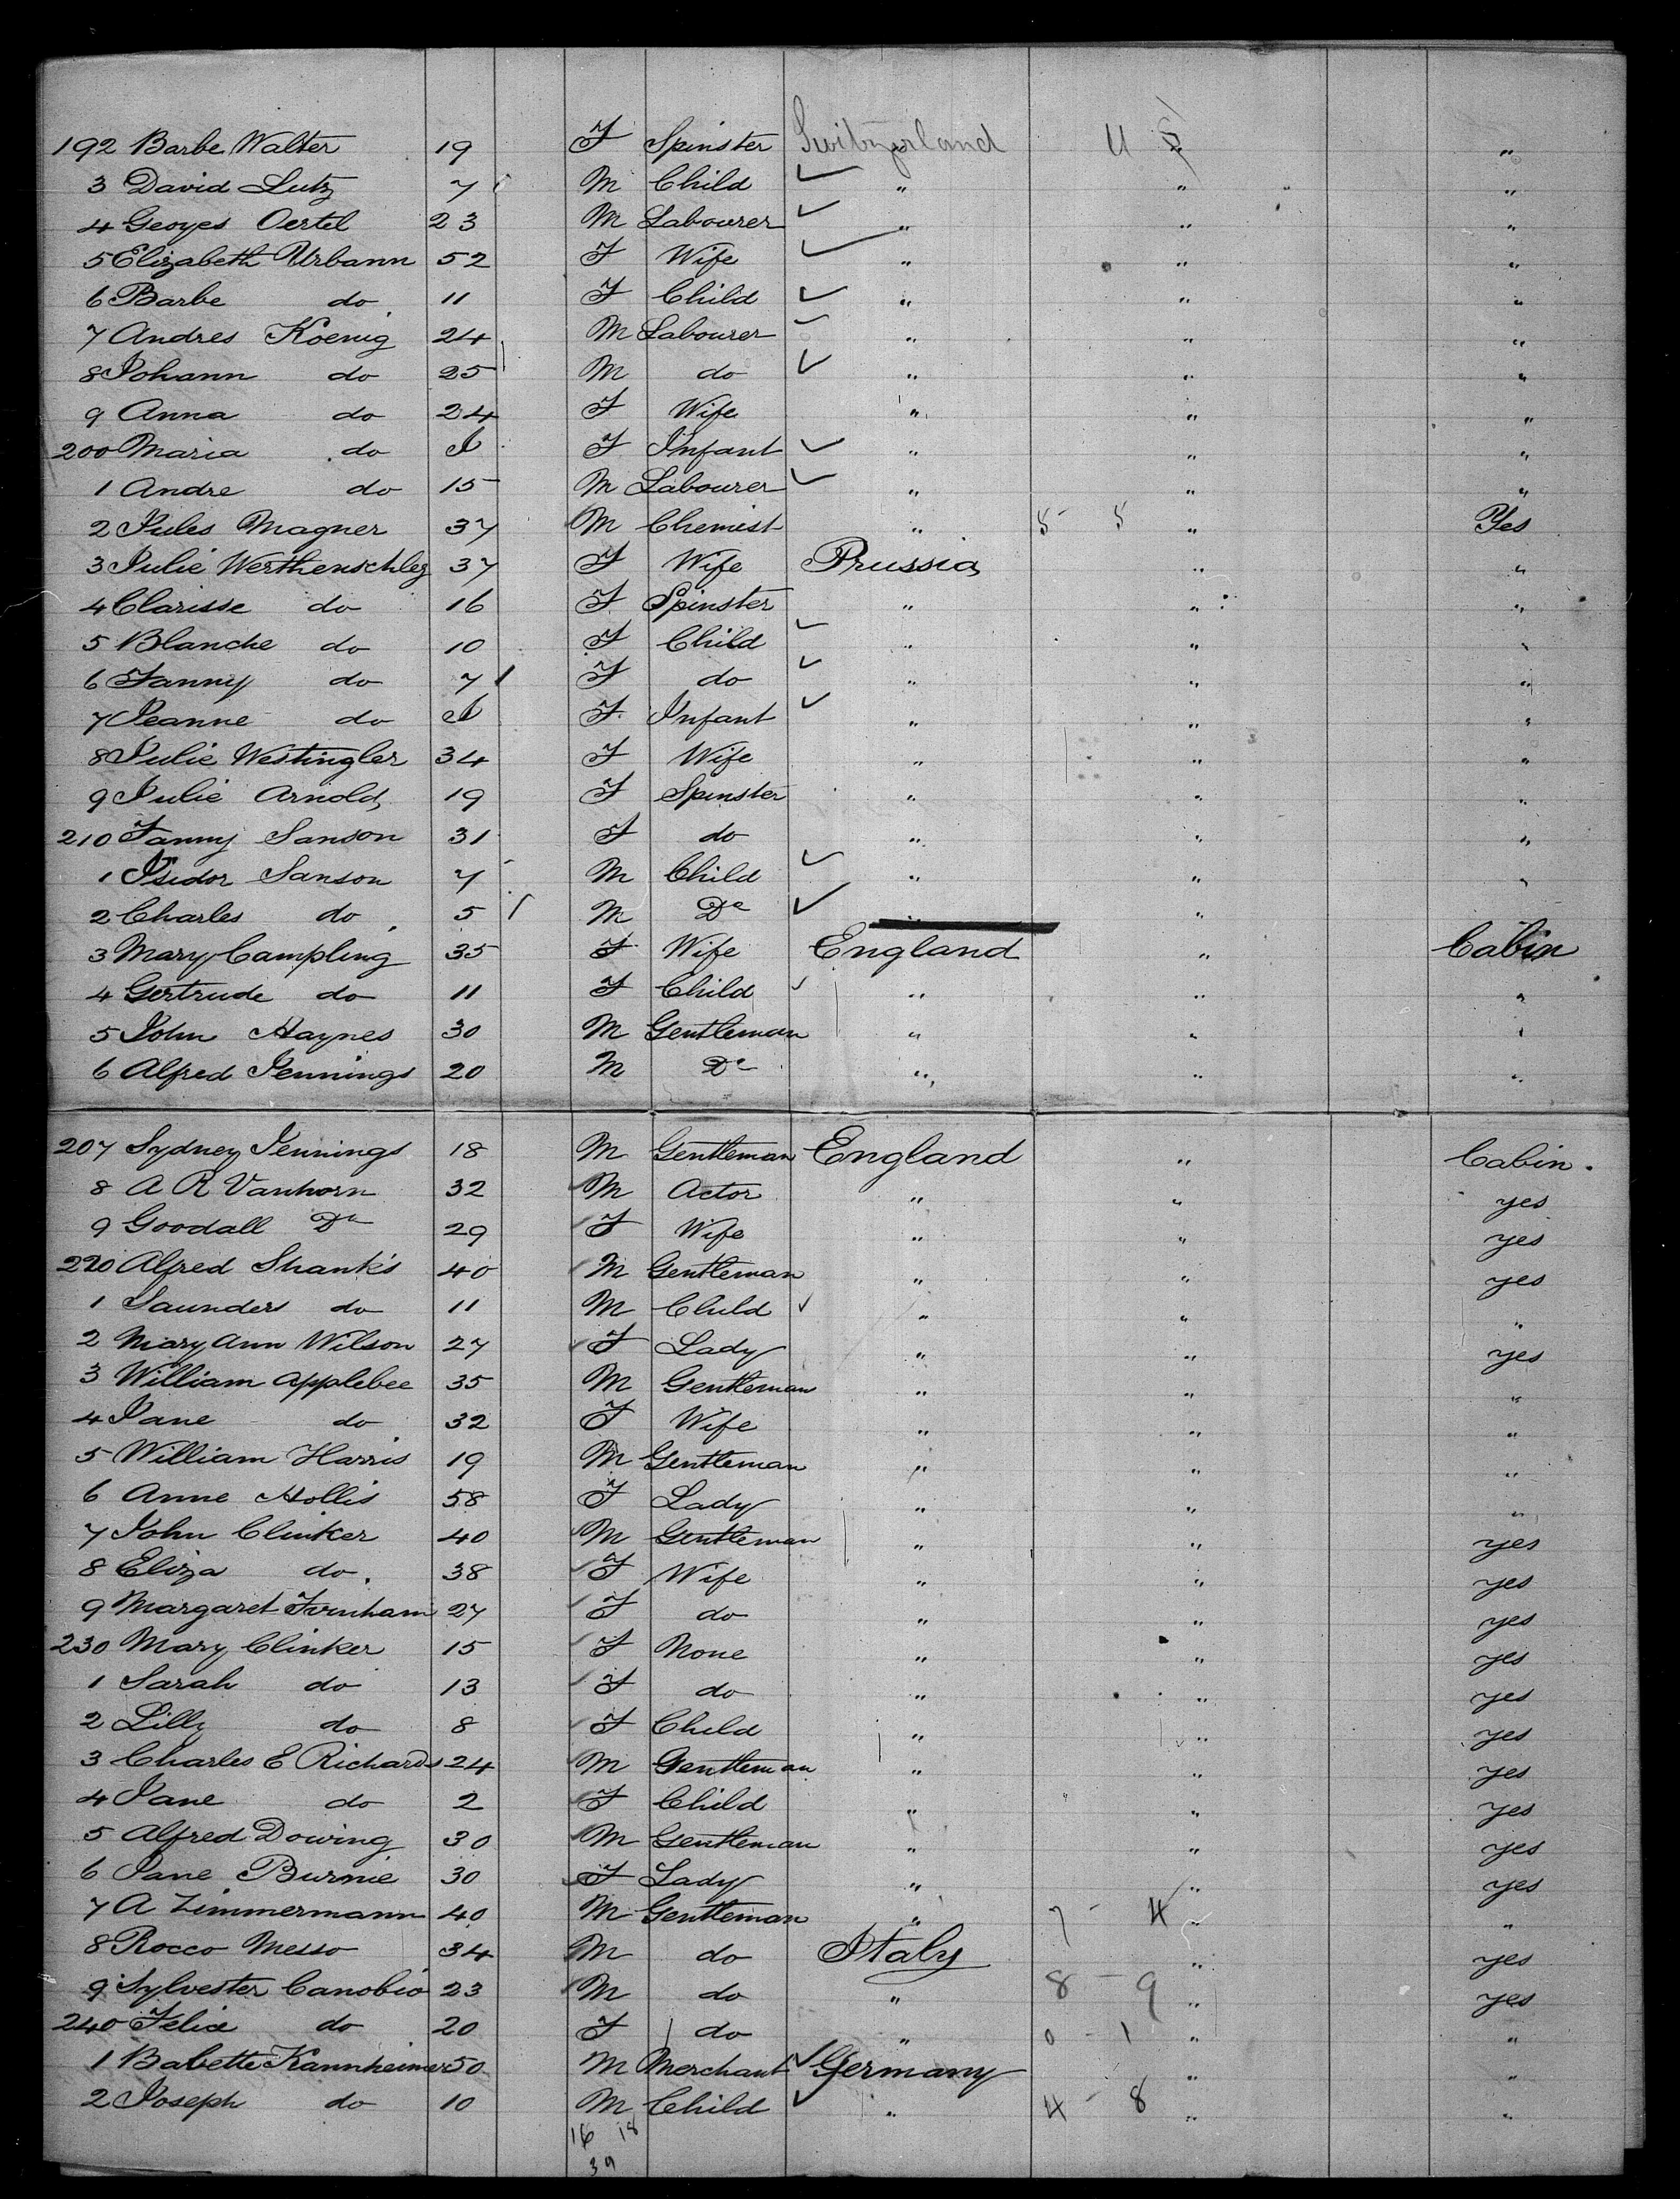 192 Barbe Walter 19 F Spinster Switzerland U S "
3 David Lutz 7 M Child " " "
4 Geoyes Oertel 23 M Labourer " " "
5 Elizabeth Urbann 52 F Wife " " "
6 Barbe do 11 F Child " " "
7 Andres Koenig 24 M Labourer " " "
8 Johann do 25 M do " " "
9 Anna do 24 F Wife " " "
200 Maria do I F Infant " " "
1 Andre do 15 M Labourer " " "
2 Jules Magner 37 M Chemist " 5 5 " Yes
3 Julie Werthenschleg 37 F Wife Prussia " "
4 Clarisse do 16 F Spinster " " "
5 Blanche do 10 F Child " " "
6 Fanny do 7 F do " " "
7 Jeanne do I F Infant " " "
8 Julie Westingler 34 F Wife " " "
9 Julie Arnold 19 F Spinster " " "
210 Fanny Sanson 31 F do " " "
1 Isidor Sanson 7 M Child " " "
2 Charles do 5 M Do " "
3 Mary Campling 35 F Wife England " Cabin
4 Gertrude do 11 F Child " " "
5 John Haynes 30 M Gentleman " " "
6 Alfred Jennings 20 M Do " " "
207 Sydney Jennings 18 M Gentleman England " Cabin.
8 A R Vanhorn 32 M Actor " " yes
9 Goodall Do 29 F Wife " " yes
220 Alfred Shanks 40 M Gentleman " " yes
1 Saunders do 11 M Child " " "
2 Mary Ann Wilson 27 F Lady " " yes
3 William Applebee 35 M Gentleman " " "
4 Jane do 32 F Wife " " "
5 William Harris 19 M Gentleman " " "
6 Anne Hollis 58 F Lady " " "
7 John Clinker 40 M Gentleman " " yes
8 Eliza do. 38 F Wife " " yes
9 Margaret 27 F do " " yes
230 Mary Clinker 15 F None " " yes
1 Sarah do 13 F do " " yes
2 Lilly do 8 F Child " " yes
3 Charles E Richards 24 M Gentleman " " yes
4 Jane do 2 F Child " " yes
5 Alfred Dowing 30 M Gentleman " " yes
6 Jane Burnie 30 F Lady " " yes
7 A Zimmermann 40 M Gentleman " 7 - 4 " "
8 Rocco Messo 34 M do Italy " yes
9 Sylvester Canobio 23 M do " 8 - 9 " yes
240 Felice do 20 F do " 0 - 1 " "
1 Babette Kannheimer 50 M Merchant Germany " "
2 Joseph do 10 M Child " 4 - 8 " "
16 18
39